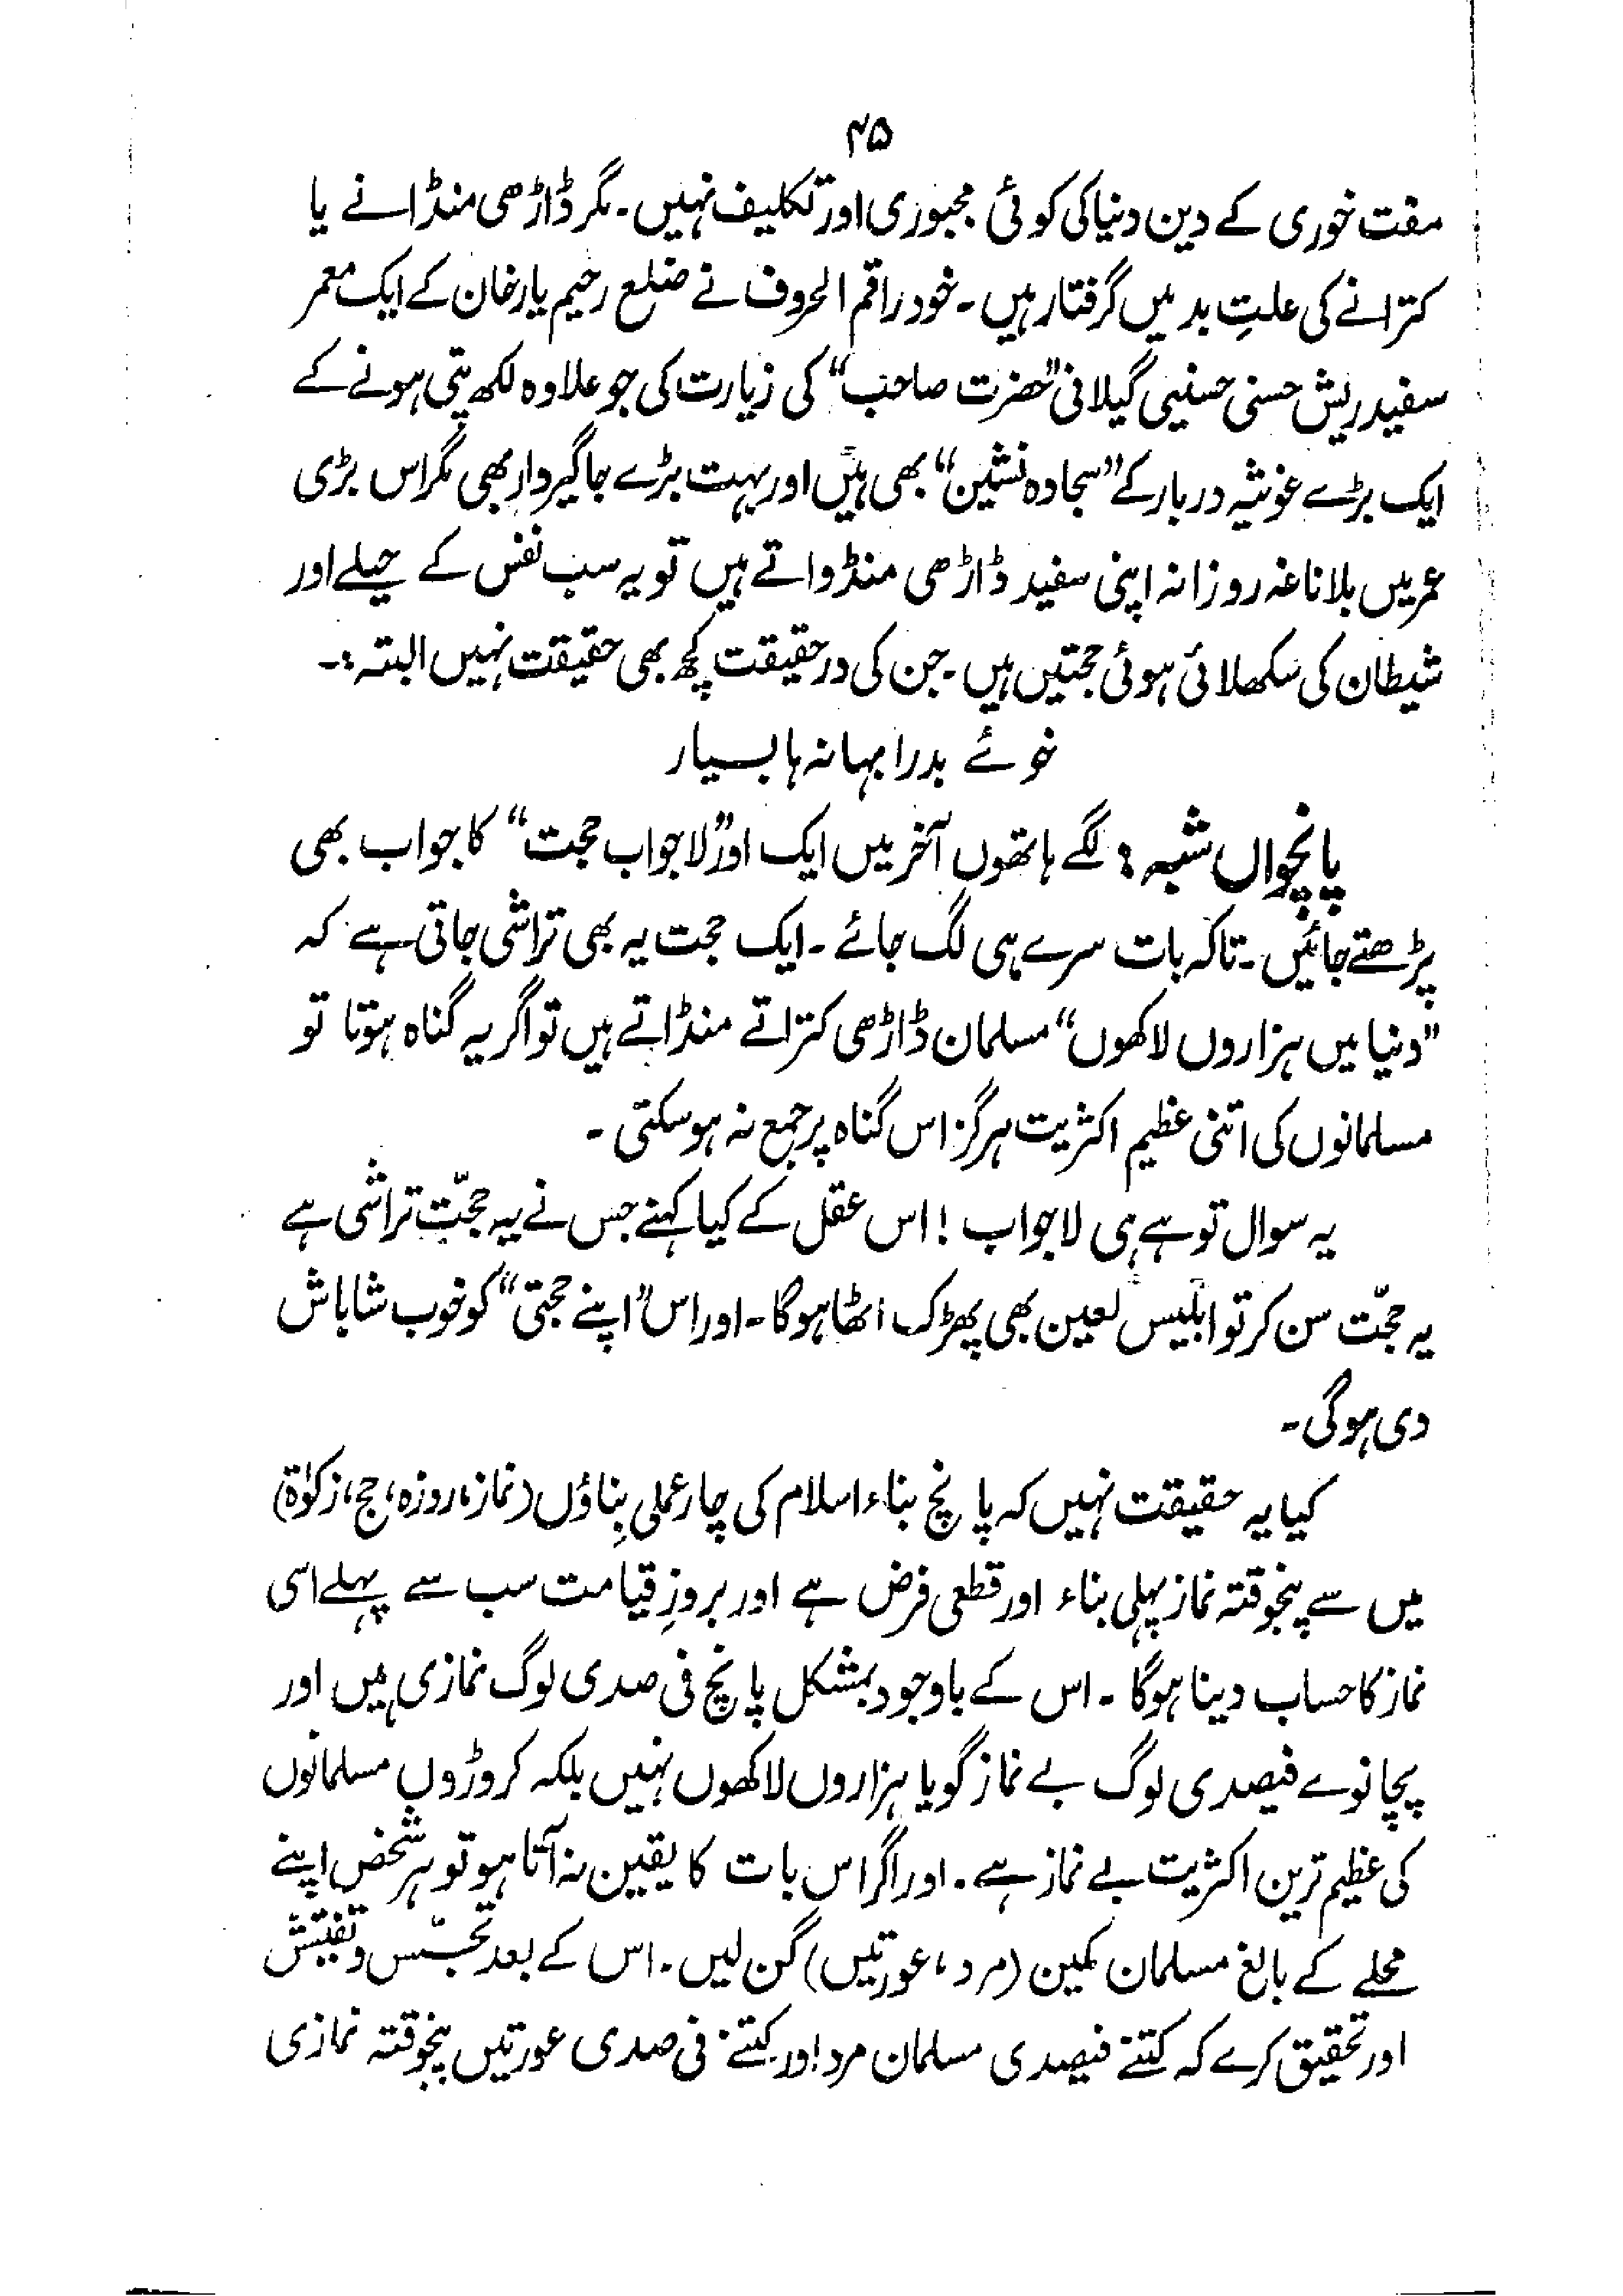 ۴۵
مفت خوری کے دین دنیا کی کوئی مجبوری اور تکلیف نہیں۔ مگر ڈاڑھی منڈانے یا
کترانے کی علتِ بد میں گرفتار ہیں۔ خود راقم الحروف نے ضلع رحیم یار خان کے ایک معمر
سفید ریش حسنی حسینی گیلانی "حضرت صاحب" کی زیارت کی جو علاوہ لکھ پتی ہونے کے
ایک بڑے غوثیہ دربار کے "سجادہ نشین" بھی ہیں اور بہت بڑے جاگیردار بھی مگر اس بڑی
عمر میں بلا ناغہ روزانہ اپنی سفید ڈاڑھی منڈواتے ہیں تو یہ سب نفس کے حیلے اور
شیطان کی سکھلائی ہوئی حجتیں ہیں۔ جن کی در حقیقت کچھ بھی حقیقت نہیں البتہ :۔
خوئے بد را بہانہ ہا بسیار
پانچواں شبہ : لگے ہاتھوں آخر میں ایک اور "لاجواب حجت" کا جواب بھی
پڑھتے جائیں۔ تاکہ بات سرے ہی لگ جائے۔ ایک حجت یہ بھی تراشی جاتی ہے کہ
"دنیا میں ہزاروں لاکھوں" مسلمان ڈاڑھی کتراتے منڈاتے ہیں تو اگر یہ گناہ ہوتا تو
مسلمانوں کی اتنی عظیم اکثریت ہرگز اس گناہ پر جمع نہ ہو سکتی۔
یہ سوال تو ہے ہی لاجواب ! اس عقل کے کیا کہنے جس نے یہ حجّت تراشی ہے
یہ حجّت سن کر تو ابلیس لعین بھی پھڑک اٹھا ہوگا۔ اور اس "اپنے حجتی" کو خوب شاباش
دی ہوگی۔
کیا یہ حقیقت نہیں کہ پانچ بناء اسلام کی چار عملی بِناؤں (نماز، روزہ، حج، زکوٰۃ)
میں سے پنجوقتہ نماز پہلی بناء اور قطعی فرض ہے اور بروزِ قیامت سب سے پہلے اسی
نماز کا حساب دینا ہوگا۔ اس کے باوجود بمشکل پانچ فی صدی لوگ نمازی ہیں اور
پچانوے فیصدی لوگ بے نماز گویا ہزاروں لاکھوں نہیں بلکہ کروڑوں مسلمانوں
کی عظیم ترین اکثریت بے نماز ہے۔ اور اگر اس بات کا یقین نہ آتا ہو تو ہر شخص اپنے
محلے کے بالغ مسلمان مکین (مرد، عورتیں) گن لیں۔ اس کے بعد تجسّس و تفتیش
اور تحقیق کرے کہ کتنے فیصدی مسلمان مرد اور کتنے فی صدی عورتیں پنجوقتہ نمازی